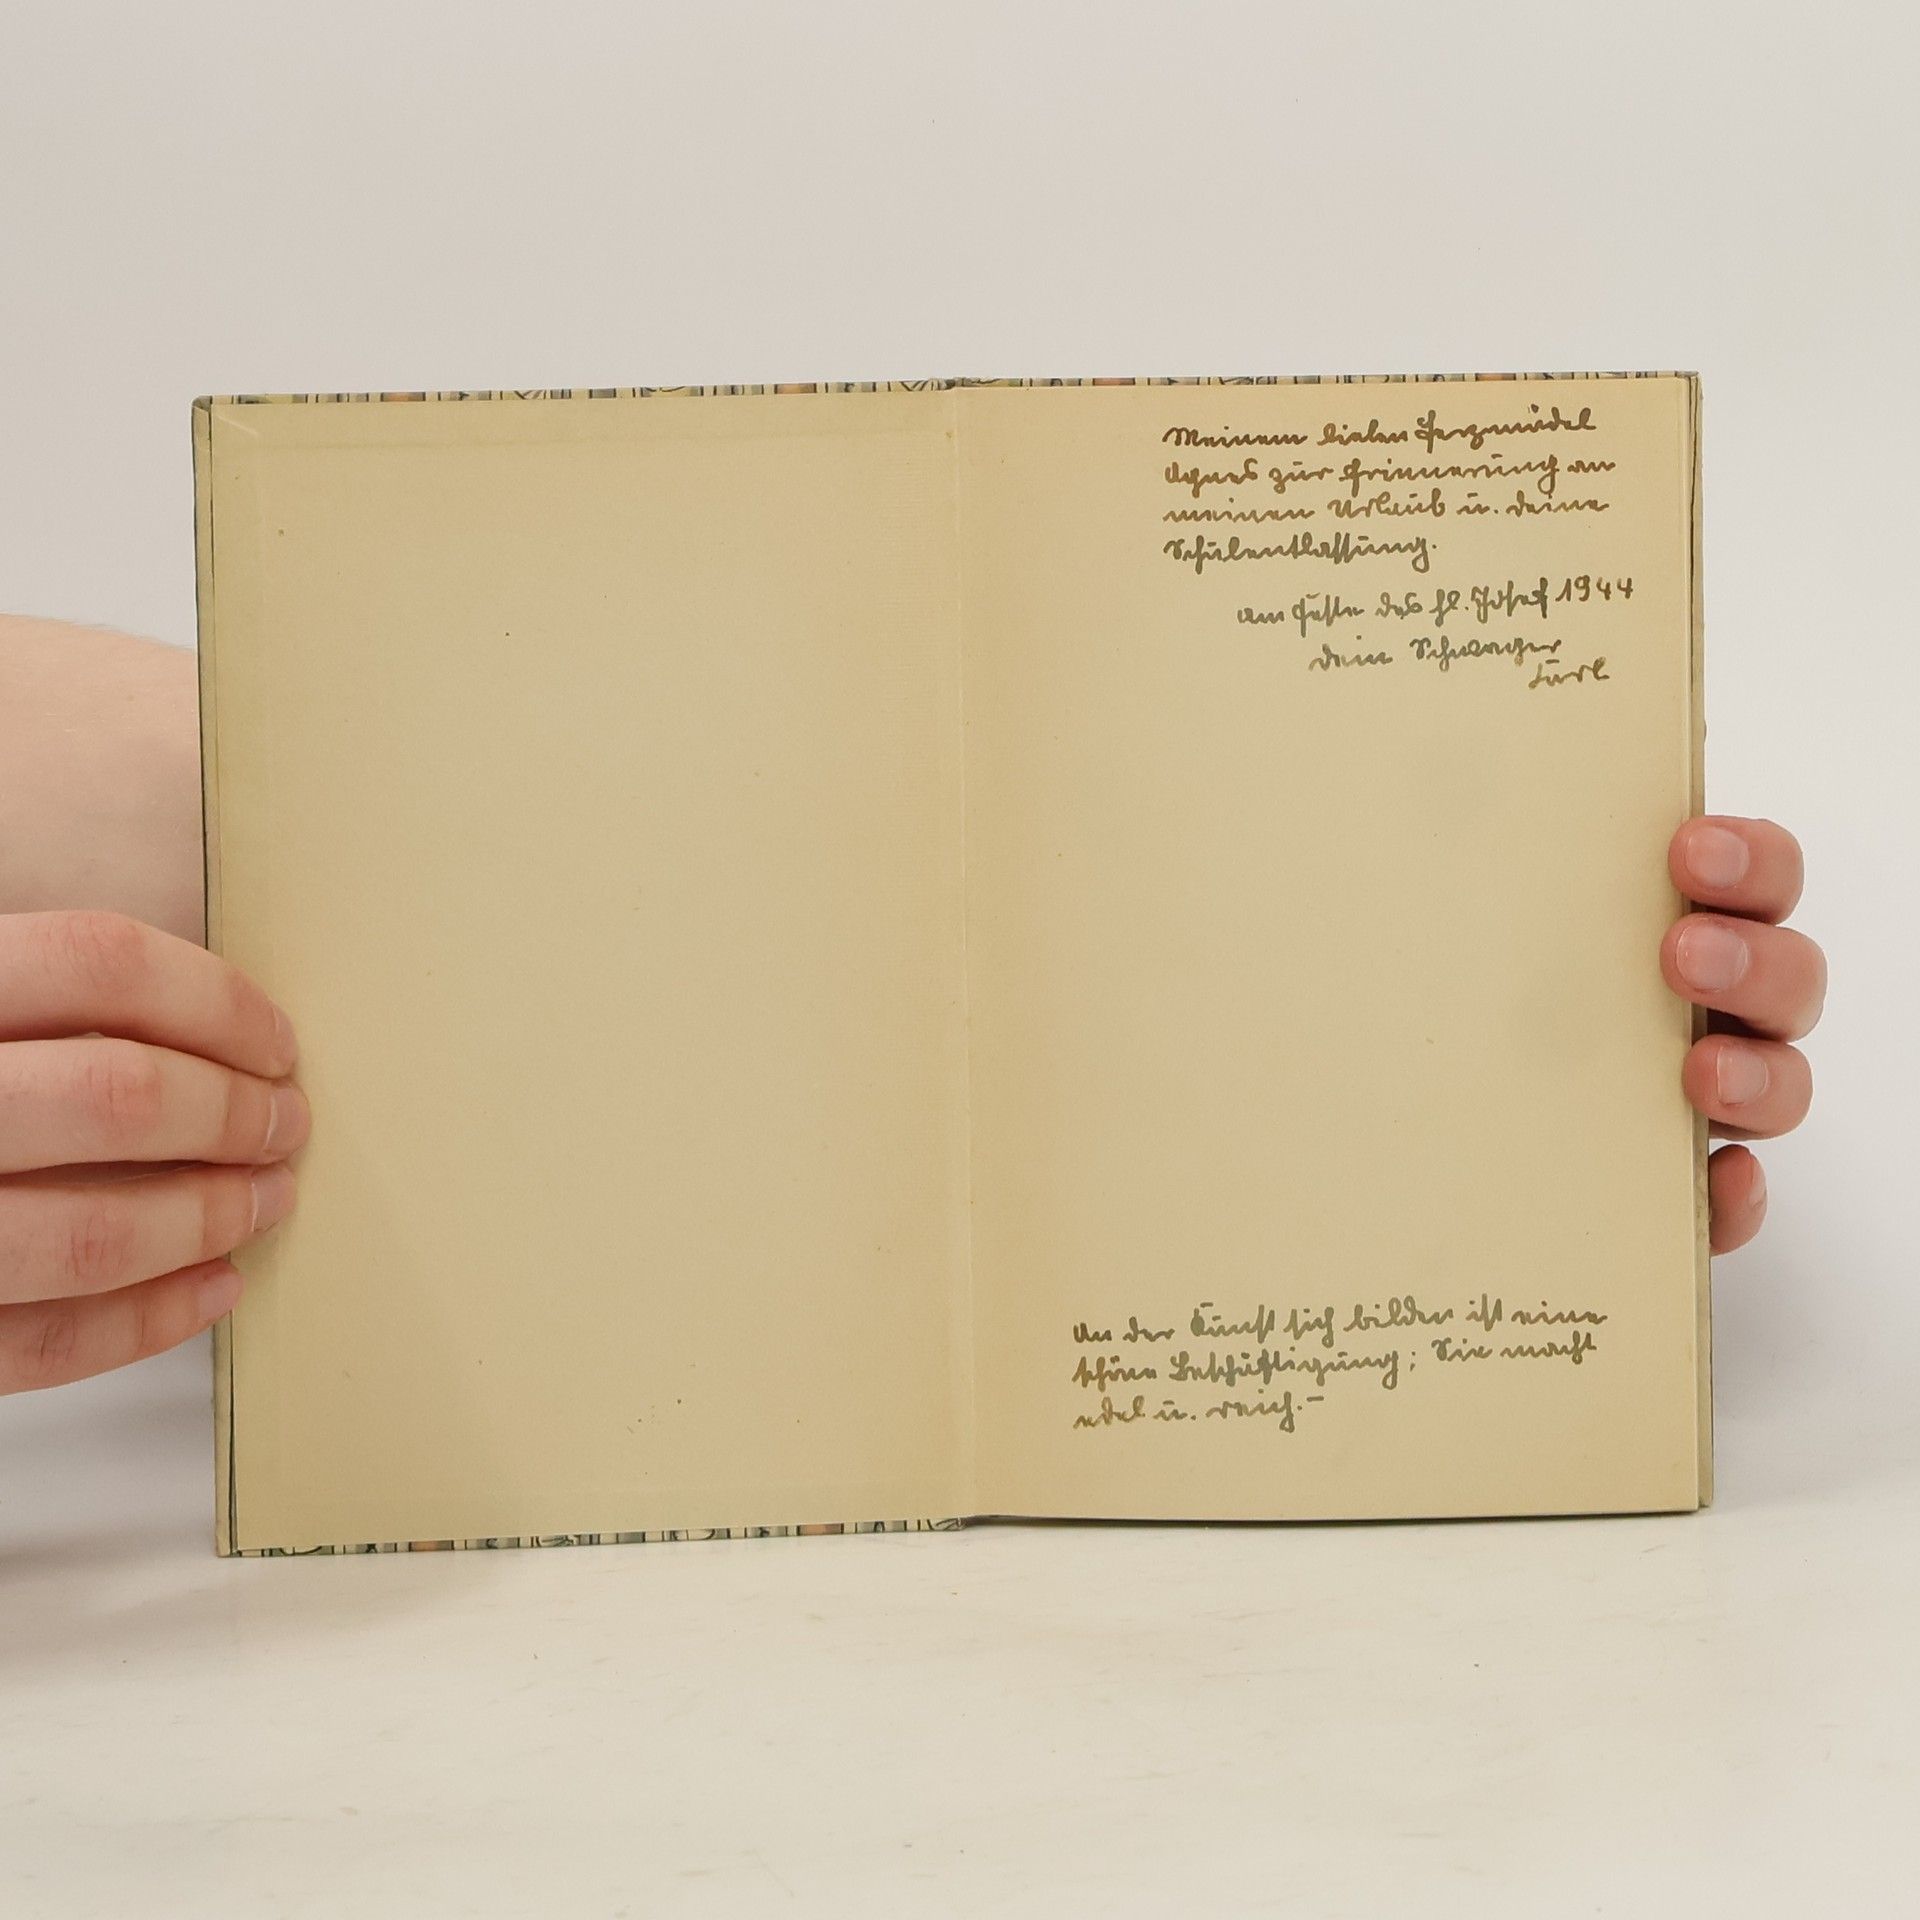 Meinem lieben Herzmädel
Agnes zur Erinnerung an
meinen Urlaub u. deine
Schulentlassung.
am Feste des hl. Josef 1944
dein Schwager
Karl
An der Kunst sich bilden ist eine
schöne Beschäftigung; Sie macht
edel u. reich.-